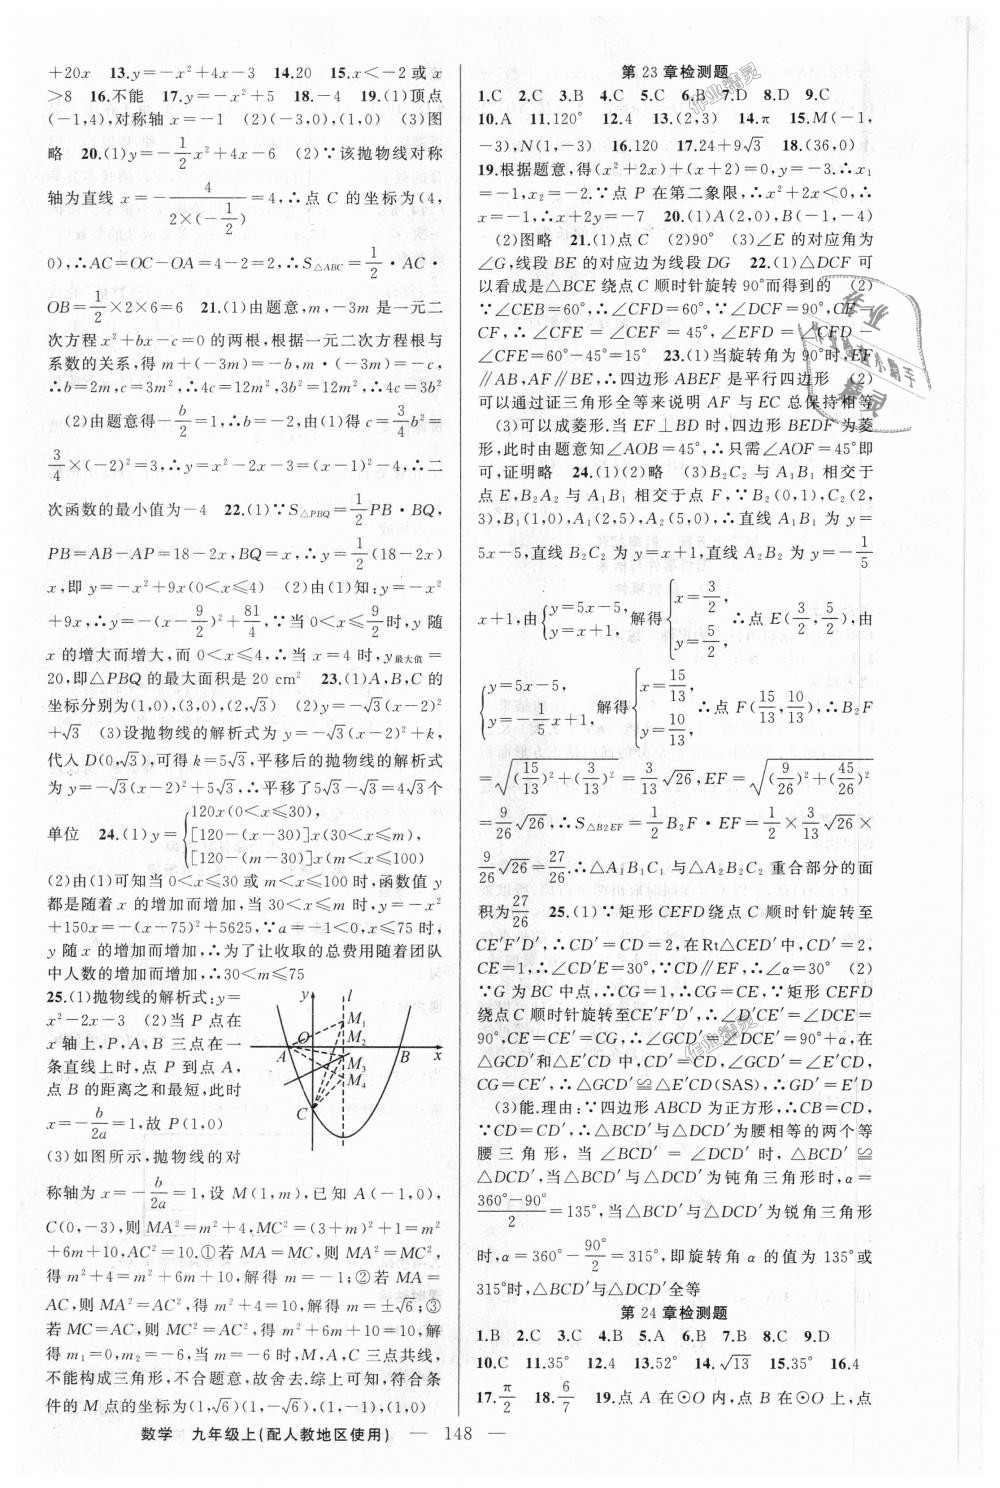 +20x　13.y=-x²+4x-3　14.20　15.x<-2或x
>8　16.不能　17.y=-x²+5　18.-4　19.(1)顶点
(-1,4),对称轴x=-1　(2)(-3,0),(1,0)　(3)图
略　20.(1)y=-1/2x²+4x-6　(2)∵该抛物线对称
轴为直线x=-4/(2×(-1/2))=4,∴点C的坐标为(4,
0),∴AC=OC-OA=4-2=2,∴S△ABC=1/2·AC·
OB=1/2×2×6=6　21.(1)由题意,m,-3m是一元二
次方程x²+bx-c=0的两根,根据一元二次方程根与
系数的关系,得m+(-3m)=-b,m·(-3m)=-c,
∴b=2m,c=3m²,∴4c=12m²,3b²=12m²,∴4c=3b²
(2)由题意得-b/2=1,∴b=-2,由(1)得c=3/4b²=
3/4×(-2)²=3,∴y=x²-2x-3=(x-1)²-4,∴二
次函数的最小值为-4　22.(1)∵S△PBQ=1/2PB·BQ,
PB=AB-AP=18-2x,BQ=x,∴y=1/2(18-2x)
x,即y=-x²+9x(0<x≤4)　(2)由(1)知:y=-x²
+9x,∴y=-(x-9/2)²+81/4,∵当0<x≤9/2时,y随
x的增大而增大,而0<x≤4,∴当x=4时,y最大值=
20,即△PBQ的最大面积是20 cm²　23.(1)A,B,C的
坐标分别为(1,0),(3,0),(2,√3)　(2)y=-√3(x-2)²
+√3　(3)设抛物线的解析式为y=-√3(x-2)²+k,
代入D(0,√3),可得k=5√3,平移后的抛物线的解析式
为y=-√3(x-2)²+5√3,∴平移了5√3-√3=4√3个
单位　24.(1)y={120x(0<x≤30),
[120-(x-30)]x(30<x≤m),
[120-(m-30)]x(m<x≤100)
(2)由(1)可知当0<x≤30或m<x≤100时,函数值y
都是随着x的增加而增加,当30<x≤m时,y=-x²
+150x=-(x-75)²+5625,∵a=-1<0,x≤75时,
y随x的增加而增加,∴为了让收取的总费用随着团队
中人数的增加而增加,∴30<m≤75
25.(1)抛物线的解析式:y=
x²-2x-3　(2)当P点在
x轴上,P,A,B三点在一
条直线上时,点P到点A,
点B的距离之和最短,此时
x=-b/2a=1,故P(1,0)
(3)如图所示,抛物线的对
y l M₁ A O M₂ M₃ B x M₄ C
称轴为x=-b/2a=1,设M(1,m),已知A(-1,0),
C(0,-3),则MA²=m²+4,MC²=(3+m)²+1=m²
+6m+10,AC²=10.①若MA=MC,则MA²=MC²,
得m²+4=m²+6m+10,解得m=-1;②若MA=
AC,则MA²=AC²,得m²+4=10,解得m=±√6;③
若MC=AC,则MC²=AC²,得m²+6m+10=10,解
得m₁=0,m₂=-6,当m=-6时,M,A,C三点共线,
不能构成三角形,不合题意,故舍去.综上可知,符合条
件的M点的坐标为(1,√6)(1,-√6),(1,-1),(1,0)
第23章检测题
1.C　2.C　3.B　4.C　5.C　6.B　7.D　8.D　9.C
10.A　11.120°　12.4　13.(2,3)　14.π　15.M(-1,
-3),N(1,-3)　16.120　17.24+9√3　18.(36,0)
19.根据题意,得(x²+2x)+(x+2)=0,y=-3.∴x₁
=-1,x₂=-2.∵点P在第二象限,∴x²+2x<0,∴
x=-1,∴x+2y=-7　20.(1)A(2,0),B(-1,-4)
(2)图略　21.(1)点C　(2)90°　(3)∠E的对应角为
∠G,线段BE的对应边为线段DG　22.(1)△DCF可
以看成是△BCE绕点C顺时针旋转90°而得到的　(2)
∵∠CEB=60°,∴∠CFD=60°,∵∠DCF=90°,CE=
CF,∴∠CFE=∠CEF=45°,∠EFD=∠CFD-
∠CFE=60°-45°=15°　23.(1)当旋转角为90°时,EF
∥AB,AF∥BE,∴四边形ABEF是平行四边形　(2)
可以通过证三角形全等来说明AF与EC总保持相等
(3)可以成菱形.当EF⊥BD时,四边形BEDF为菱
形,此时由题意知∠AOB=45°,∴只需∠AOF=45°即
可,证明略　24.(1)(2)略　(3)B₂C₂与A₁B₁相交于
点E,B₂A₂与A₁B₁相交于点F,∵B₂(0,1),C₂(2,
3),B₁(1,0),A₁(2,5),A₂(5,0),∴直线A₁B₁为y=
5x-5,直线B₂C₂为y=x+1,直线A₂B₂为y=-1/5
x+1,由{y=5x-5,y=x+1,解得{x=3/2,y=5/2,∴点E(3/2,5/2),由
{y=5x-5,y=-1/5x+1,解得{x=15/13,y=10/13,∴点F(15/13,10/13),∴B₂F
=√((15/13)²+(3/13)²)=3/13√26,EF=√((9/26)²+(45/26)²)
=9/26√26,∴S△B2EF=1/2B₂F·EF=1/2×3/13√26×
9/26√26=27/26.∴△A₁B₁C₁与△A₂B₂C₂重合部分的面
积为27/26　25.(1)∵矩形CEFD绕点C顺时针旋转至
CE′F′D′,∴CD′=CD=2,在Rt△CED′中,CD′=2,
CE=1,∴∠CD′E=30°,∵CD∥EF,∴∠α=30°　(2)
∵G为BC中点,∴CG=1,∴CG=CE,∵矩形CEFD
绕点C顺时针旋转至CE′F′D′,∴∠D′CE′=∠DCE=
90°,CE=CE′=CG,∴∠GCD′=∠DCE′=90°+α,在
△GCD′和△E′CD中,CD′=CD,∠GCD′=∠E′CD,
CG=CE′,∴△GCD′≌△E′CD(SAS),∴GD′=E′D
(3)能.理由:∵四边形ABCD为正方形,∴CB=CD,
∵CD=CD′,∴△BCD′与△DCD′为腰相等的两个等
腰三角形,当∠BCD′=∠DCD′时,△BCD′≌
△DCD′,当△BCD′与△DCD′为钝角三角形时,α=
(360°-90°)/2=135°,当△BCD′与△DCD′为锐角三角形
时,α=360°-90°/2=315°,即旋转角α的值为135°或
315°时,△BCD′与△DCD′全等
第24章检测题
1.B　2.C　3.C　4.B　5.A　6.B　7.B　8.C　9.D
10.C　11.35°　12.4　13.52°　14.√13　15.35°　16.4
17.π/2　18.6/7　19.点A在⊙O内,点B在⊙O上,点
数学　九年级上(配人教地区使用)　— 148 —